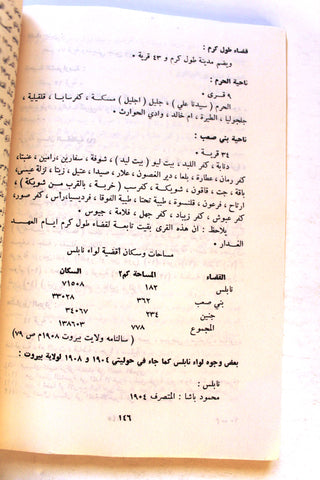 قضاء طول كرم :
ويضم مدينة طول كرم و ٤٣ قرية ٠
ناحية الحرم :
٩ قرى ٠
الحرم ( سيدنا علي ) ، جليل ( اجليل ) مسكة ، كفرسابا ، قلقيلية ،
جلجوليا ، الطيرة ، ام خالد ، وادي الحوارث ٠
ناحية بني صعب :
٣٤ قرية ٠
دنابة ، كفر اللبد ، بيت ليو ( بيت ليد ) ، شوفة ، سفارين ، رامين ، عنبتا ،
كفر رمان ، عطارة ، بلعا ، دير الغصون ، علار ، صيدا ، عتيل ، زيتا ، نزلة عيسى ،
باقة ، جت ، قاقون ، شويكة ، كفرسب ( خربة ، بالقرب من شويكة ) ،
ارتاح ، فرعون ، فلتسوة ، طيبة تحتا ، طيبة الفوقا ، فرديسيا ، رأس ، كفر صور ،
كفر عبوش ، كفر زيباد ، كفر جهل ، فلامة ، جيوس ٠
يلاحظ : ان هذه القرى بقيت تابعة لقضاء طول كرم ايام العهد
الغدار ٠
مساحات وسكان أقضية لواء نابلس
القضاء المساحة كم٢ السكان
نابلس ١٨٢ ٧١٥٠٨
بني صعب ٣٦٢ ٣٣٠٢٨
جنين ٢٣٤ ٣٤٠٦٧
المجموع ٧٧٨ ١٣٨٦٠٣
( سالنامه ولايت بيروت ١٩٠٨م ص ٧٩ )
بعض وجوه لواء نابلس كما جاء في حوليتي ١٩٠٤ و ١٩٠٨ لولاية بيروت :
نابلس :
محمود باشا : المتصرف ١٩٠٤
١٤٦